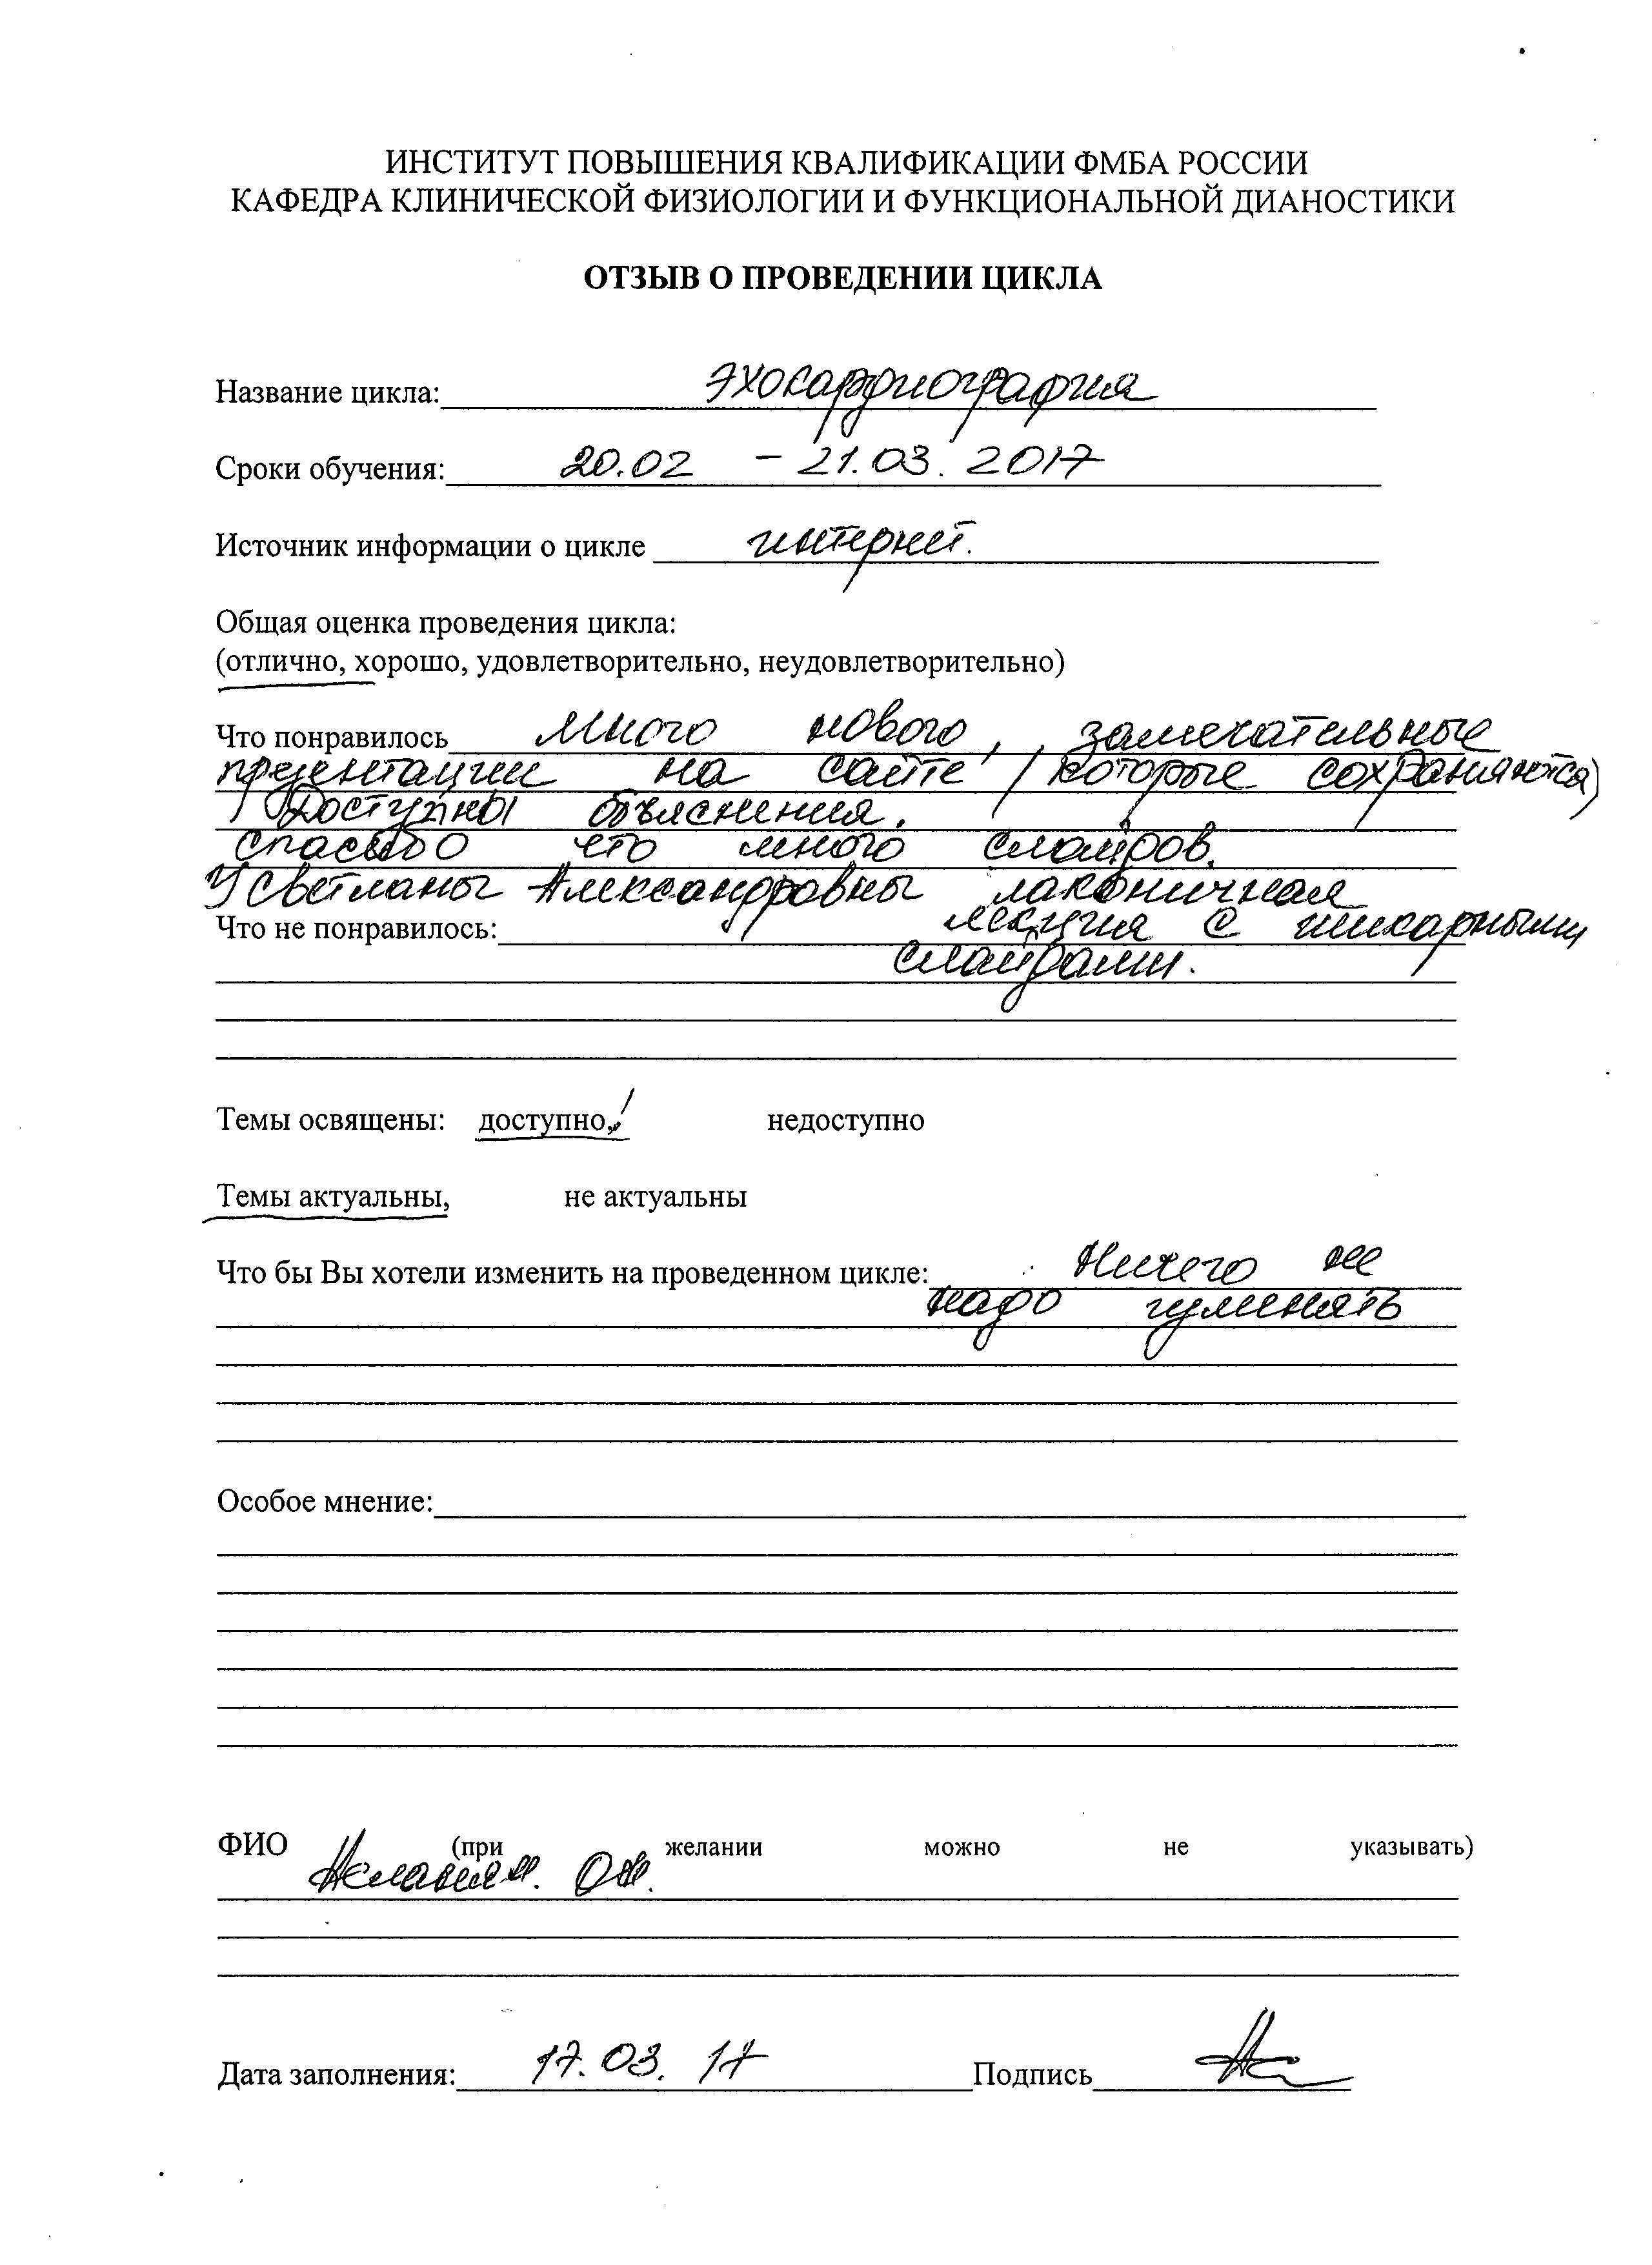 ИНСТИТУТ ПОВЫШЕНИЯ КВАЛИФИКАЦИИ ФМБА РОССИИ
КАФЕДРА КЛИНИЧЕСКОЙ ФИЗИОЛОГИИ И ФУНКЦИОНАЛЬНОЙ ДИАНОСТИКИ
ОТЗЫВ О ПРОВЕДЕНИИ ЦИКЛА
Название цикла: Эхокардиография
Сроки обучения: 20.02 – 21.03. 2017
Источник информации о цикле интернет.
Общая оценка проведения цикла:
(отлично, хорошо, удовлетворительно, неудовлетворительно)
Что понравилось много нового, замечательные
презентации на сайте (которые сохраняются)
Доступны объяснения.
спасибо что много слайдов.
У Светланы Александровны лаконичная
Что не понравилось: лекция с шикарными
слайдами.
Темы освящены: доступно,! недоступно
Темы актуальны, не актуальны
Что бы Вы хотели изменить на проведенном цикле: Ничего не
надо изменять
Особое мнение:
ФИО (при желании можно не указывать)
Дата заполнения: 17.03. 17 Подпись